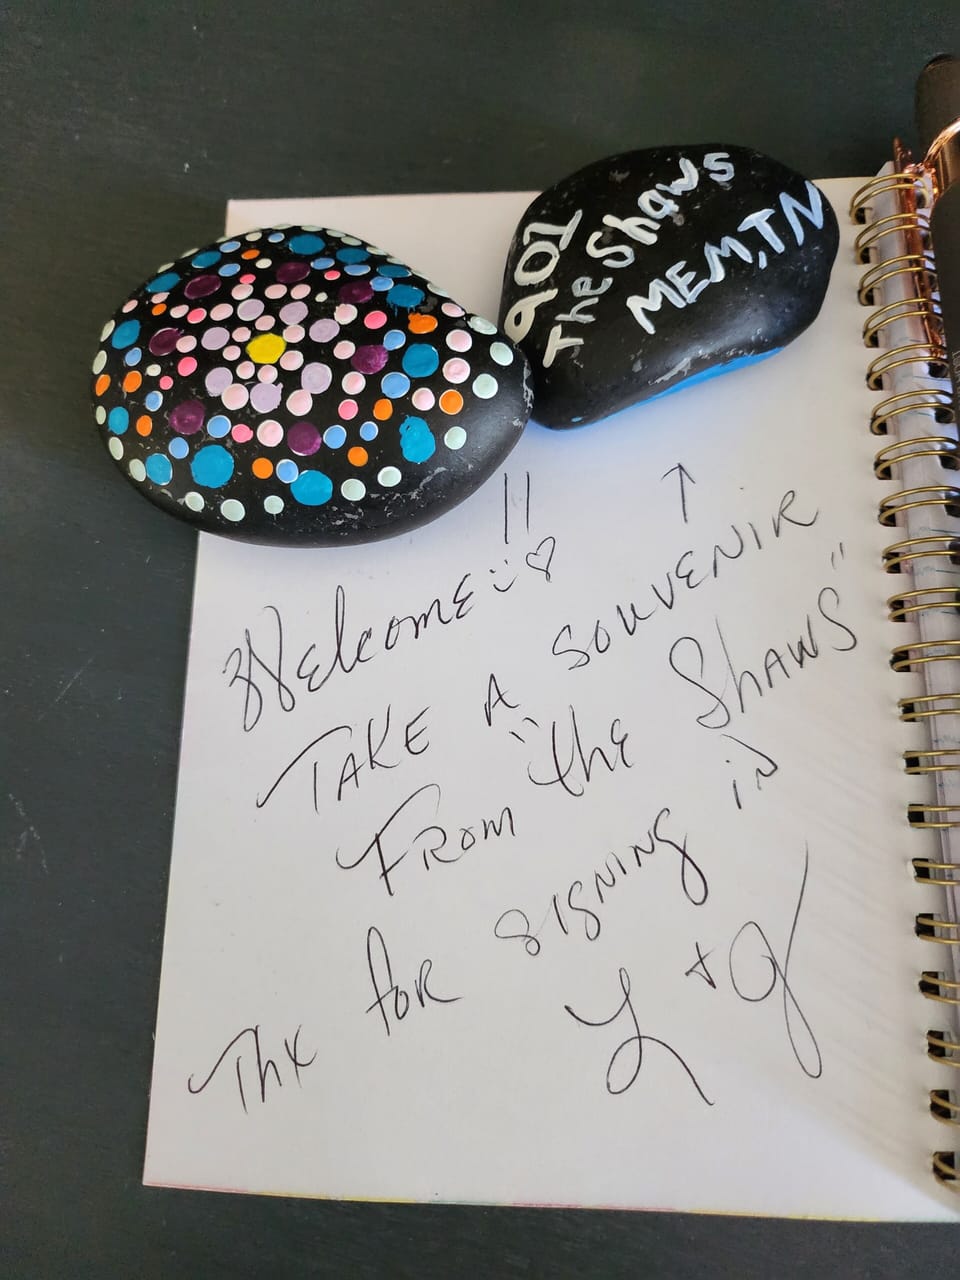 901
The Shaws
MEM,TN
Welcome!! ♡
TAKE A SOUVENIR
FROM "the Shaws"
Thx for signing in
L + J